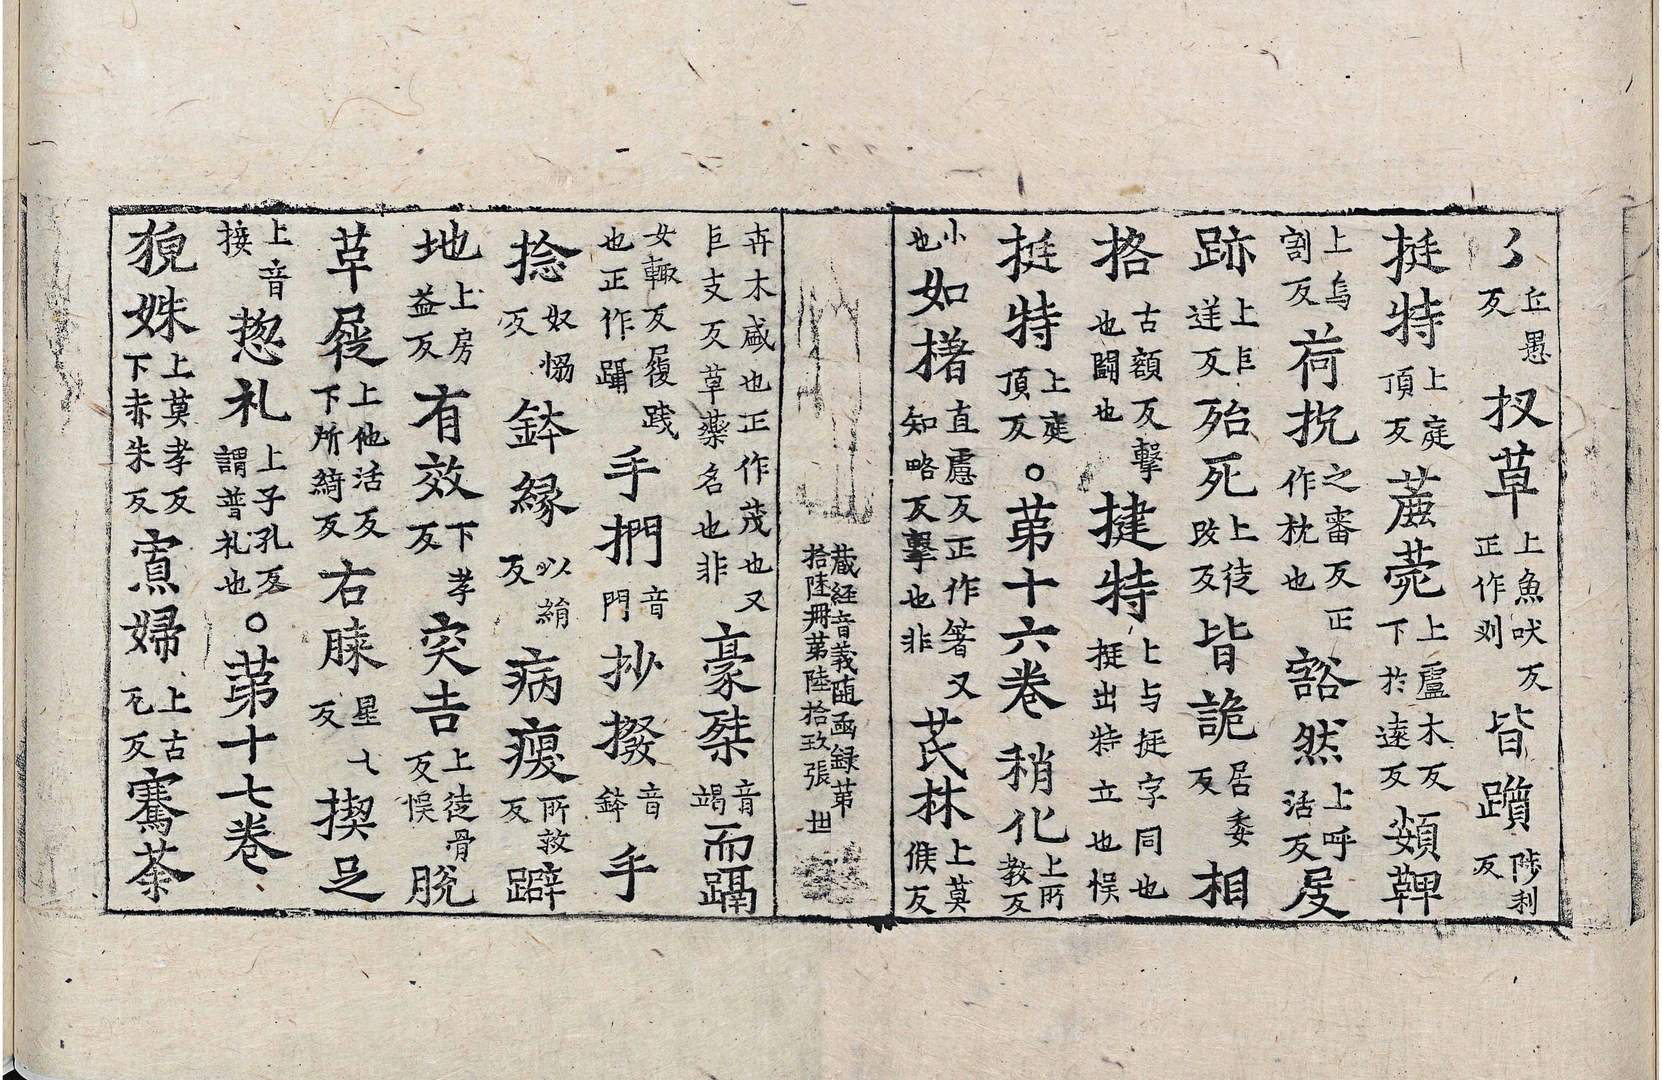 丘愚反 扠草 上魚吠反正作刈 皆躓 陟利反
挺特 上庭頂反 蔍薧 上盧木反下於遠反 䫌鞞
上烏割反 荷抌 之審反正作枕也 豁然 上呼活反 㞋
跡 上巨逆反 殆死 上徒改反 皆詭 居委反 相
挌 古額反擊也鬪也 揵特 上与挺字同也挺出特立也悮
挺特 上庭頂反 。苐十六卷 稍化 上所教反
小也 如櫡 直慮反正作箸又知略反擊也非 茂林 上莫候反
藏經音義随函録苐
拾陸冊苐陸拾玖張 世
卉木盛也正作茂也又巨支反草藥名也非 豪桀 音竭 而蹋
女輙反履踐也正作躡 手捫 音門 抄撥 音鉢 手
捻 奴㥦反 鉢緣 以絹反 病瘦 所救反 躃
地 上房益反 有效 下孝反 突吉 上徒骨反悮 脫
草屣 上他活反下所綺反 右膝 星七反 揳足
上音接 揔礼 上子孔反謂普礼也 。苐十七卷
㹸姝 上莫孝反下赤朱反 寡婦 上古瓦反 騫荼